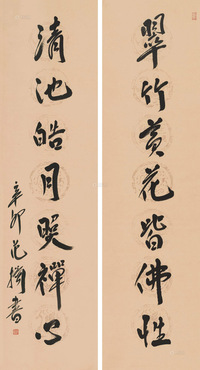 翠竹黄花皆佛性
清池皓月照禅心
辛卯 范扬书